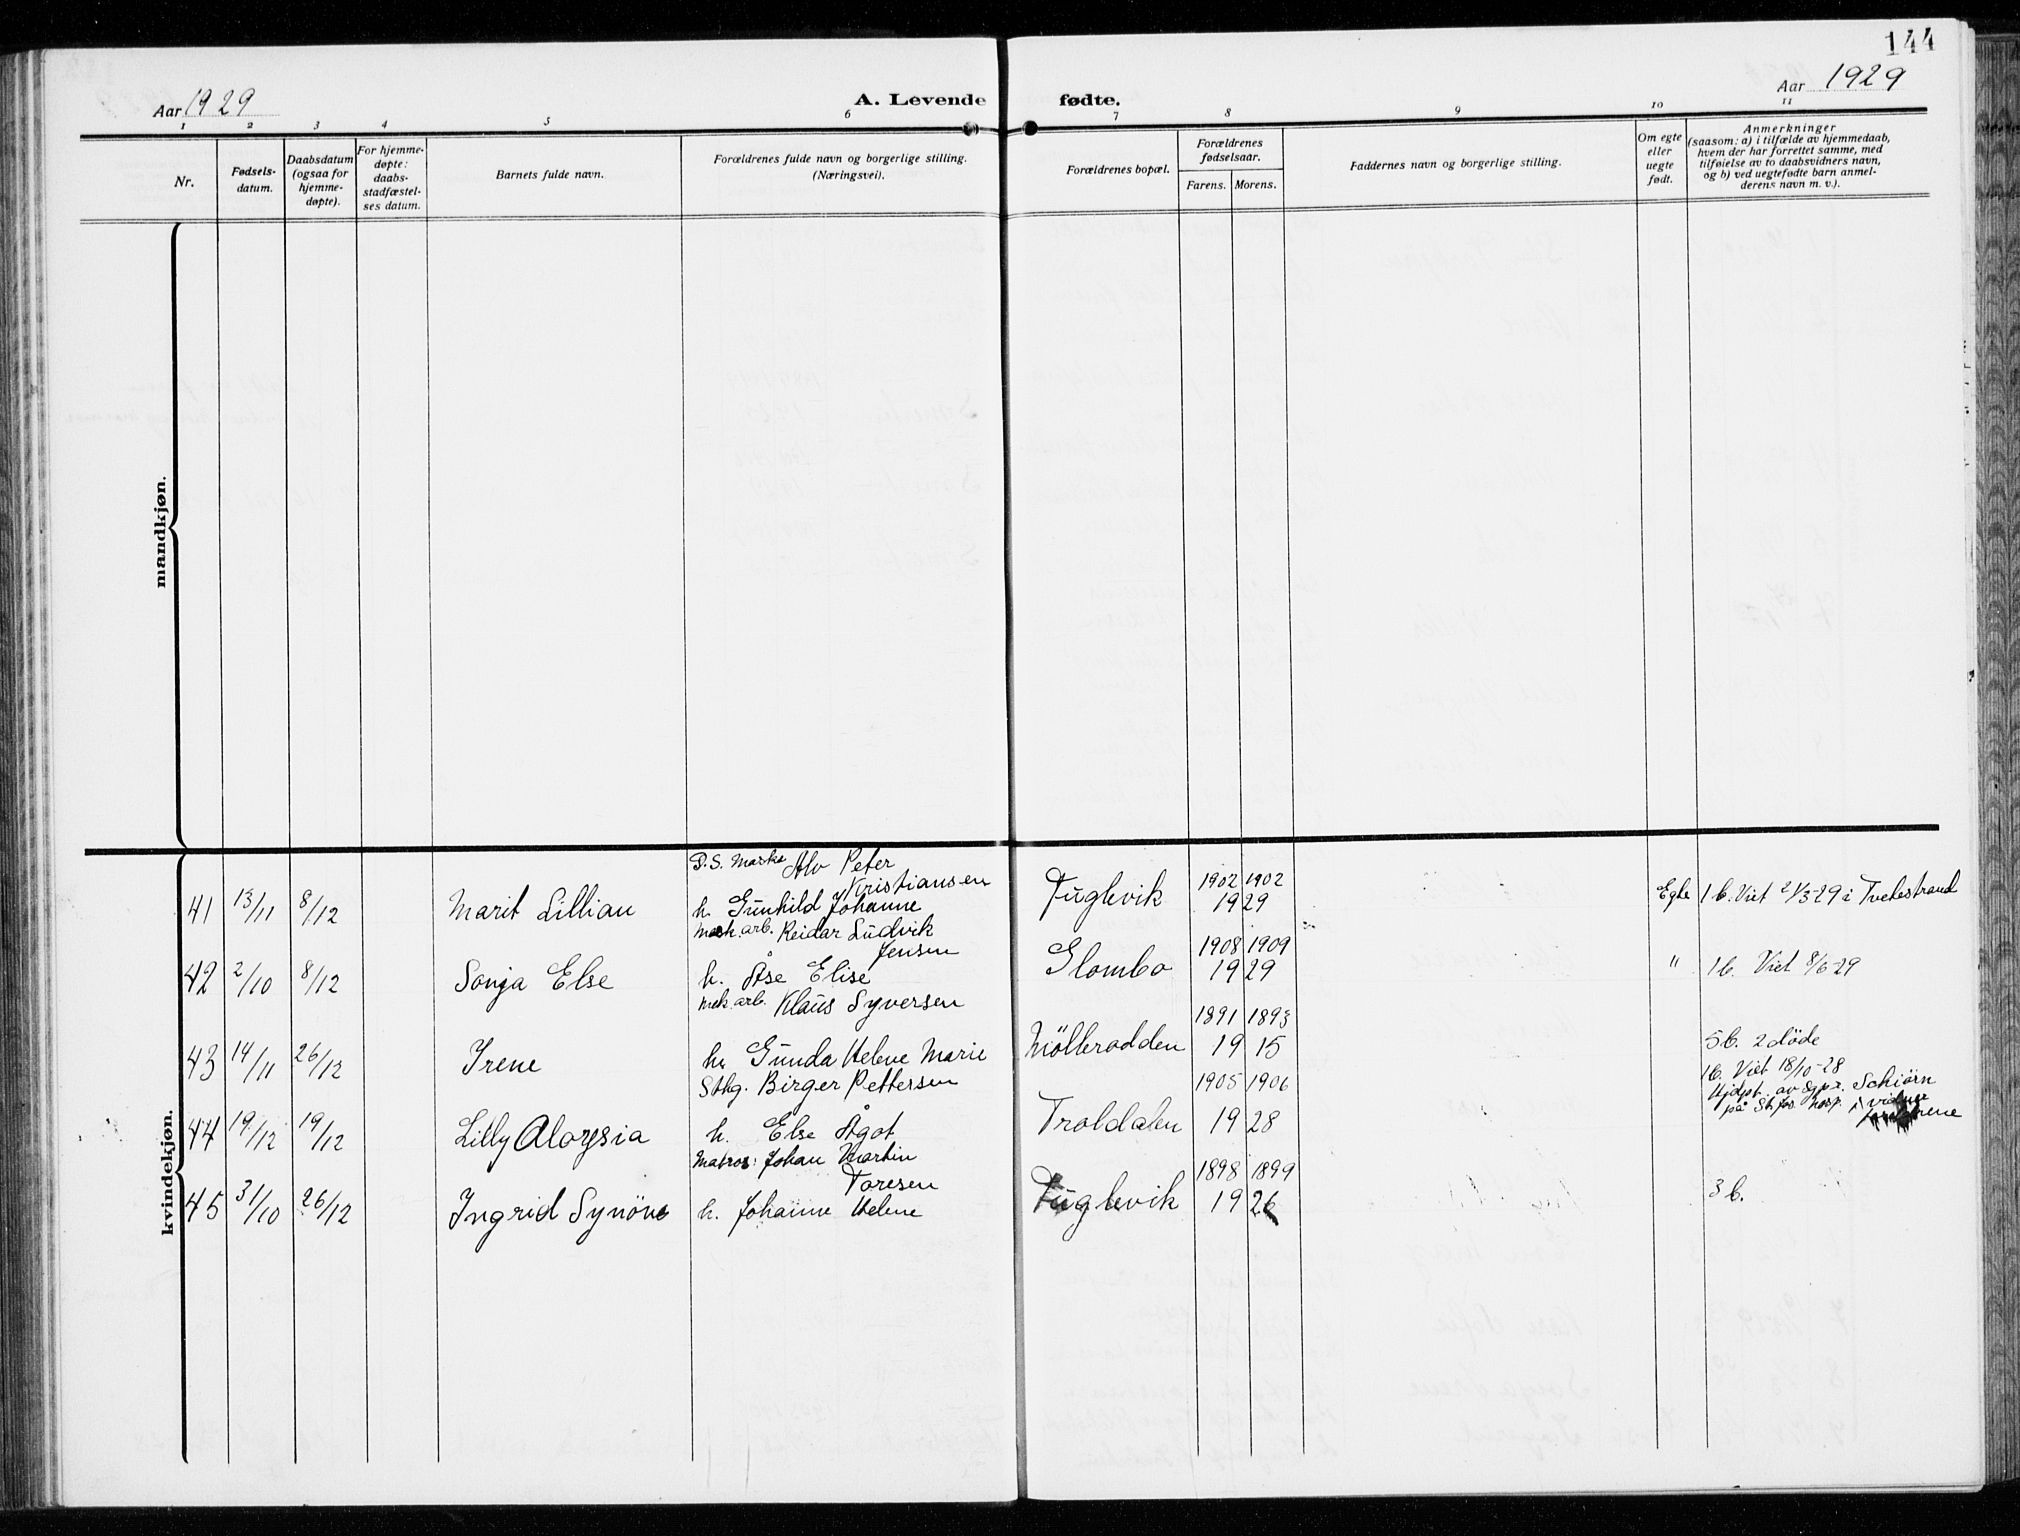 144
Aar 1929
A. Levende fødte.
Aar 1929
1 2 3 4 5 6 7 8 9 10 11
Nr.
Fødsels-
datum.
Daabsdatum
(ogsaa for
hjemme-
døpte).
For hjemme-
døpte:
daabs-
stadfæstel-
ses datum.
Barnets fulde navn.
Forældrenes fulde navn og borgerlige stilling.
(Næringsvei).
Forældrenes bopæl.
Forældrenes
fødselsaar.
Farens. Morens.
Faddernes navn og borgerlige stilling.
Om egte
eller
uegte
født.
Anmerkninger
(saasom: a) i tilfælde av hjemmedaab,
hvem der har forrettet samme, med
tilføielse av to daabsvidners navn,
og b) ved uegtefødte barn anmel-
derens navn m. v.).
mandkjøn.
kvindekjøn.
P.S. Maske Alv Peter
Kristiansen
41 13/11 8/12 Marit Lillian h. Gunhild Johanne Fuglevik 1902 1902
1929 Egte 1 b. Viet 2/3-29 i Tvedestrand
mek. arb. Reidar Ludvik
Jensen
42 2/10 8/12 Sonja Else h. Åse Elise Glombo 1908 1909
1929 " 1 b. Viet 8/6-29
mek. arb. Klaus Syversen
43 14/11 26/12 Irene h. Gunda Helene Marie Möllerodden 1891 1893
1915 5 b. 2 döde
Sthg. Birger Pettersen
44 19/12 19/12 Lilly Aloysia h. Else Ågot Troldalen 1905 1906
1928 1 b. Viet 18/10-28
Hjdpt. av Sgpr. Schiörn
på St. Jos. hosp.
Matros: Johan Martin
Toresen
45 31/10 26/12 Ingrid Synöve h. Johanne Helene Fuglevik 1898 1899
1926 3 b.